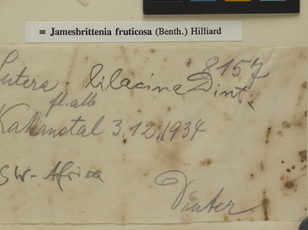 = Jamesbrittenia fruticosa (Benth.) Hilliard
8157
Sutera lilacina Dint.
fl. alb
3.12.1934
SW-Africa
Dinter